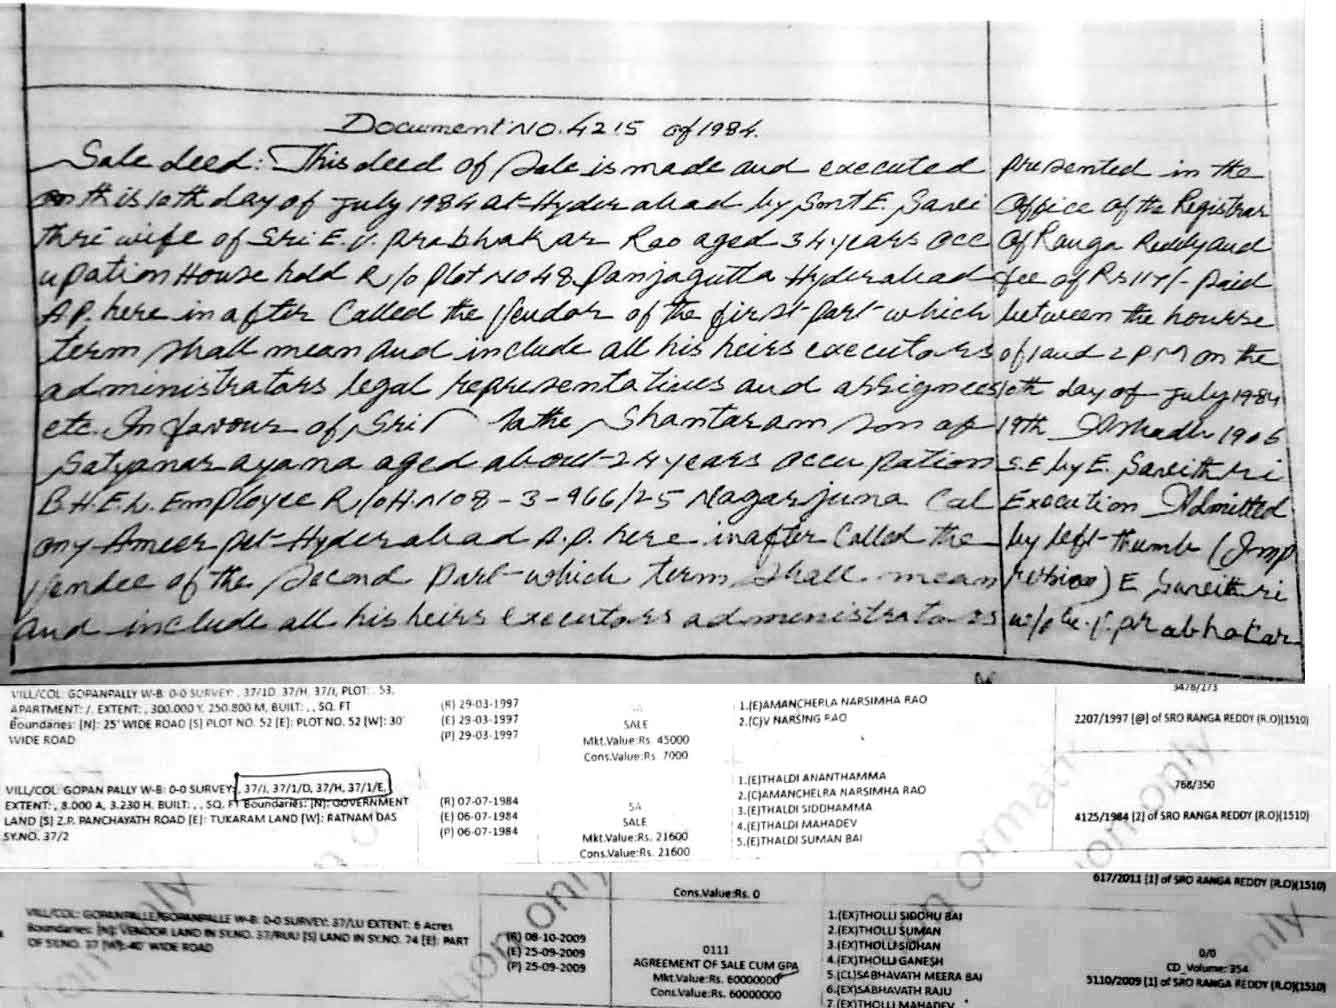 Document No. 4215 of 1984.
Sale deed: This deed of Sale is made and executed
on this 10th day of July 1984 at Hyderabad by Smt E. Savi
thri wife of Sri E. V. Prabhakar Rao aged 34 years occ
upation House hold R/o Plot No 48 Panjagutta Hyderabad
A.P. here in after Called the Vendor of the first part which
term shall mean and include all his heirs executors
administrators legal representatives and assignees
etc. In favour of Sri Shantaram son of
Satyanarayana aged about 24 years occupation
B.H.E.L. Employee R/o H.No 8-3-966/25 Nagarjuna Col
ony Ameerpet Hyderabad A.P. here inafter Called the
Vendee of the Second Part which term shall mean
and include all his heirs executors administrators
presented in the
office of the Registrar
of Ranga Reddy and
fee of Rs 117/- paid
between the hourse
of 1 and 2 P.M on the
10th day of July 1984
19th 1906
S.E by E. Saveithri
Execution Admitted
by left thumb (Imp
ression) E Saveithri
w/o E. V. Prabhakar
VILL/COL: GOPANPALLY W-B: 0-0 SURVEY: , 37/1D, 37/H, 37/I, PLOT: . 53,
APARTMENT: /. EXTENT: , 300.000 Y, 250.800 M, BUILT: , , SQ. FT
Boundaries: [N]: 25' WIDE ROAD [S] PLOT NO. 52 [E]: PLOT NO. 52 [W]: 30'
WIDE ROAD
(R) 29-03-1997
(E) 29-03-1997
(P) 29-03-1997
SALE
Mkt.Value:Rs. 45000
Cons.Value:Rs. 7000
1.(E)AMANCHERLA NARSIMHA RAO
2.(C)V NARSING RAO
3476/173
2207/1997 [@] of SRO RANGA REDDY (R.O)(1510)
VILL/COL: GOPAN PALLY W-B: 0-0 SURVEY: , 37/J, 37/1/D, 37/H, 37/1/E,
EXTENT: , 8.000 A, 3.230 H. BUILT: , , SQ. FT Boundaries: [N]: GOVERNMENT
LAND [S] Z.P. PANCHAYATH ROAD [E]: TUKARAM LAND [W]: RATNAM DAS
SY.NO. 37/2
(R) 07-07-1984
(E) 06-07-1984
(P) 06-07-1984
SA
SALE
Mkt.Value:Rs. 21600
Cons.Value:Rs. 21600
1.(E)THALDI ANANTHAMMA
2.(C)AMANCHELRA NARSIMHA RAO
3.(E)THALDI SIDDHAMMA
4.(E)THALDI MAHADEV
5.(E)THALDI SUMAN BAI
768/350
4125/1984 [2] of SRO RANGA REDDY (R.O)(1510)
Cons.Value:Rs. 0
617/2011 [1] of SRO RANGA REDDY (R.O)(1510)
VILL/COL: GOPANPALLE/GOPANPALLE W-B: 0-0 SURVEY: 37/LU EXTENT: 6 Acres
Boundaries: [N]: VENDOR LAND IN SY.NO. 37/RUU [S] LAND IN SY.NO. 74 [E]: PART
OF SY.NO. 37 [W]: 40' WIDE ROAD
(R) 08-10-2009
(E) 25-09-2009
(P) 25-09-2009
0111
AGREEMENT OF SALE CUM GPA
Mkt.Value:Rs. 60000000
Cons.Value:Rs. 60000000
1.(EX)THOLLI SIDDHU BAI
2.(EX)THOLLI SUMAN
3.(EX)THOLLI SIDHAN
4.(EX)THOLLI GANESH
5.(CL)SABHAVATH MEERA BAI
6.(EX)SABHAVATH RAJU
7.(EX)THOLLI MAHADEV
0/0
CD_Volume: 354
5110/2009 [1] of SRO RANGA REDDY (R.O)(1510)